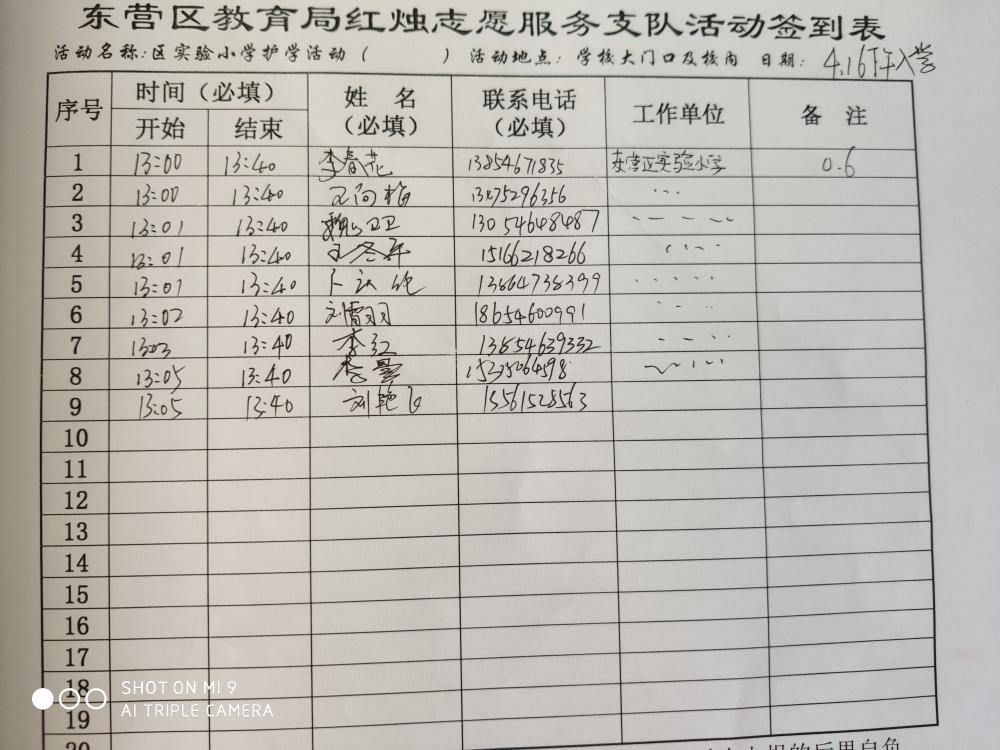 东营区教育局红烛志愿服务支队活动签到表
活动名称:区实验小学护学活动（ ） 活动地点: 学校大门口及校内 日期: 4.16下午入学
序号 时间（必填） 姓 名（必填） 联系电话（必填） 工作单位 备 注
开始 结束
1 13:00 13:40 李春花 13854671835 东营区实验小学 0.6
2 13:00 13:40 13475296356
3 13:01 13:40 13054648487
4 13:01 13:40 王冬平 15166218266
5 13:01 13:40 13864738399
6 13:02 13:40 刘霄羽 18654600991
7 13:03 13:40 李红 13854639332
8 13:05 13:40 李曼
9 13:05 13:40 刘艳飞 15561528563
10
11
12
13
14
15
16
17
18
19
20
SHOT ON MI 9
AI TRIPLE CAMERA